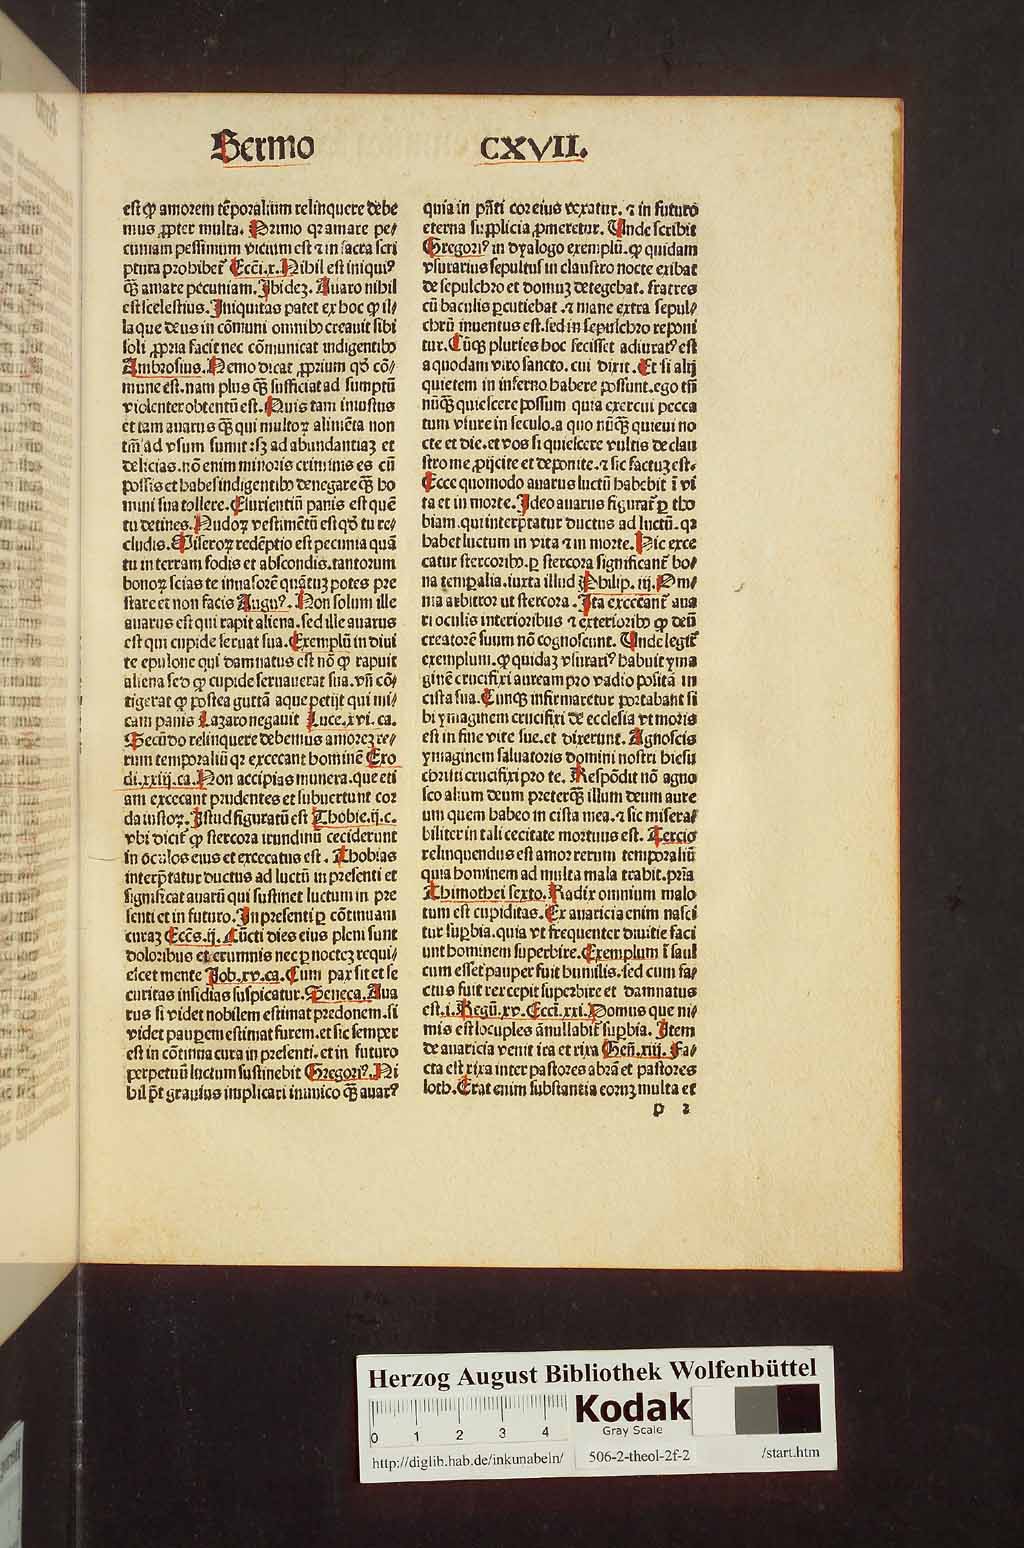 Sermo CXVII.
est ꝙ amorem tẽporalium relinquere debe
mus ꝓpter multa. Primo qꝛ amare pe/
cuniam pessimum vicium est ⁊ in sacra scri
ptura prohibet᷑ Ecci̅.x. Nihil est iniquiꝰ
qꝫ̅ amare pecuniam. Ibideꝫ. Auaro nihil
est scelestius. Iniquitas patet ex hoc ꝙ il/
la que deus in cõmuni omnibꝰ creauit sibi
soli ꝓpria facit nec cõmunicat indigentibꝰ
Ambrosius. Nemo dicat ꝓprium qd̓ cõ/
mune est. nam plus qꝫ̅ sufficiat ad sumptũ
violenter obtentũ est. Quis tam iniustus
et tam auarus qꝫ̅ qui multoꝝ alimẽta non
tm̃ ad vsum sumit: sꝫ ad abundantiaꝫ et
delicias. nõ enim minoris criminis es cũ
possis et habes indigentibꝰ denegare qꝫ̅ ho
mini sua tollere. Esurientiũ panis est quẽ
tu detines. Nudoꝝ vestimẽtũ est qd̓ tu re/
cludis. Miseroꝝ redẽptio est pecunia quã
tu in terram fodis et abscondis. tantorum
bonoꝝ scias te inuasorẽ quãtuꝫ potes pre
stare et non facis Auguꝰ. Non solum ille
auarus est qui rapit aliena. sed ille auarus
est qui cupide seruat sua. Exemplũ in diui
te epulone qui damnatus est nõ ꝙ rapuit
aliena sed ꝙ cupide seruauerat sua. vñ cõ/
tigerat ꝙ postea guttã aque petijt qui mi/
cam panis Lazaro negauit Luce.xvi. ca.
Secũdo relinquere debemus amoreꝫ re/
rum temporaliũ qꝛ excecant hominẽ Exo
di.xxiij.ca. Non accipias munera. que eti
am excecant prudentes et subuertunt cor
da iustoꝝ. Istud figuratũ est Thobie.ij.c.
vbi dicit᷑ ꝙ stercora irundinũ ceciderunt
in oculos eius et excecatus est. Thobias
interp̃tatur ductus ad luctũ in presenti et
significat auarũ qui sustinet luctum in pre
senti et in futuro. In presenti ꝑ cõtinuam
curaꝫ Eccs̃.ij. Cũcti dies eius pleni sunt
doloribus et erumnis nec ꝑ nocteꝫ requi/
escet mente Job.xv.ca. Cum pax sit et se
curitas insidias suspicatur. Seneca. Aua
rus si videt nobilem estimat predonem. si
videt pauꝑem estimat furem. et sic semper
est in cõtinua cura in presenti. et in futuro
perpetuũ luctum sustinebit Gregoriꝰ. Ni
hil p̃t grauius implicari inimico qꝫ̅ auarꝰ
quia in p̃nti cor eius vexatur. ⁊ in futuro
eterna supplicia ꝓmeretur. Unde scribit
Gregoriꝰ in dyalogo exemplũ. ꝙ quidam
vsurarius sepultus in claustro nocte exibat
de sepulchro et domuꝫ detegebat. fratres
cũ baculis ꝑcutiebat. ⁊ mane extra sepul/
chrũ inuentus est. sed in sepulchro reponi
tur. Cũqꝫ pluries hoc fecisset adiuratꝰ est
a quodam viro sancto. cui dixit. Et si alij
quietem in inferno habere possunt. ego tñ
nũqꝫ̅ quiescere possum quia exercui pecca
tum vsure in seculo. a quo nũqꝫ̅ quieui no
cte et die. et vos si quiescere vultis de clau
stro me ꝓijcite et deponite. ⁊ sic factuꝫ est.
Ecce quomodo auarus luctũ habebit ĩ vi
ta et in morte. Ideo auarus figurat᷑ ꝑ tho
biam. qui interp̃tatur ductus ad luctũ. qꝛ
habet luctum in vita ⁊ in morte. Hic exce
catur stercoribꝰ. ꝑ stercora significant᷑ bo/
na temꝑalia. iuxta illud Philip. iij. Om/
nia arbitror ut stercora. Ita excecant᷑ aua
ri oculis interioribus ⁊ exterioribꝰ ꝙ deũ
creatorẽ suum nõ cognoscunt. Unde legit᷑
exemplum. ꝙ quidaꝫ vsurariꝰ habuit yma
ginẽ crucifixi auream pro vadio positã in
cista sua. Cunqꝫ infirmaretur portabant si
bi ymaginem crucifixi de ecclesia vt moris
est in fine vite sue. et dixerunt. Agnoscis
ymaginem saluatoris domini nostri hiesu
christi crucifixi pro te. Respõdit nõ agno
sco alium deum preterqꝫ̅ illum deum aure
um quem habeo in cista mea. ⁊ sic misera/
biliter in tali cecitate mortuus est. Tercio
relinquendus est amor rerum temporaliũ
quia hominem ad multa mala trahit. pria
Thimothei sexto. Radix omnium malo
rum est cupiditas. Ex auaricia enim nasci
tur suꝑbia. quia vt frequenter diuitie faci
unt hominem superbire. Exemplum ĩ saul
cum esset pauper fuit humilis. sed cum fa/
ctus fuit rex cepit superbire et damnatus
est.i. Regũ.xv. Ecci̅.xxi. Domus que ni/
mis est locuples ãnullabit᷑ suꝑbia. Item
de auaricia venit ira et rixa Geñ.xiij. Fa/
cta est rixa inter pastores abrã et pastores
loth. Erat enim substantia eorũꝫ multa et
p 2
Herzog August Bibliothek Wolfenbüttel
0 1 2 3 4
Kodak
Gray Scale
http://diglib.hab.de/inkunabeln/ 506-2-theol-2f-2 /start.htm